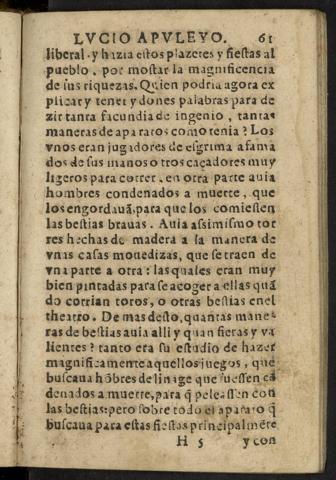 LVCIO APVLEYO. 61
liberal. y hazia estos plazeres y fiestas al
pueblo, por mostar la magnificencia
de sus riquezas. Quien podria agora ex
plicar y tener ydones palabras para de
zir tanta facundia de ingenio, tantas
maneras de aparatos como tenia? Los
vnos eran jugadores de esgrima afama
dos de sus manos otros caçadores muy
ligeros para correr. en otra parte auia
hombres condenados a muerte, que
los engordauã, para que los comiessen
las bestias brauas. Auia assimismo tor
res hechas de madera a la manera de
vnas casas mouedizas, que se traen de
vna parte a otra: las quales eran muy
bien pintadas para se acoger a ellas quã
do corrian toros, o otras bestias enel
theatro. De mas desto, quantas mane
ras de bestias auia alli y quan fieras y va
lientes? tanto era su estudio de hazer
magnificamente aquellos juegos, que
buscaua hõbres de linage que fuessen cõ
denados a muerte, para q̃ peleassen con
las bestias: pero sobre todo el aparato q̃
buscaua para estas fiestas principalmẽte
H 5 y con